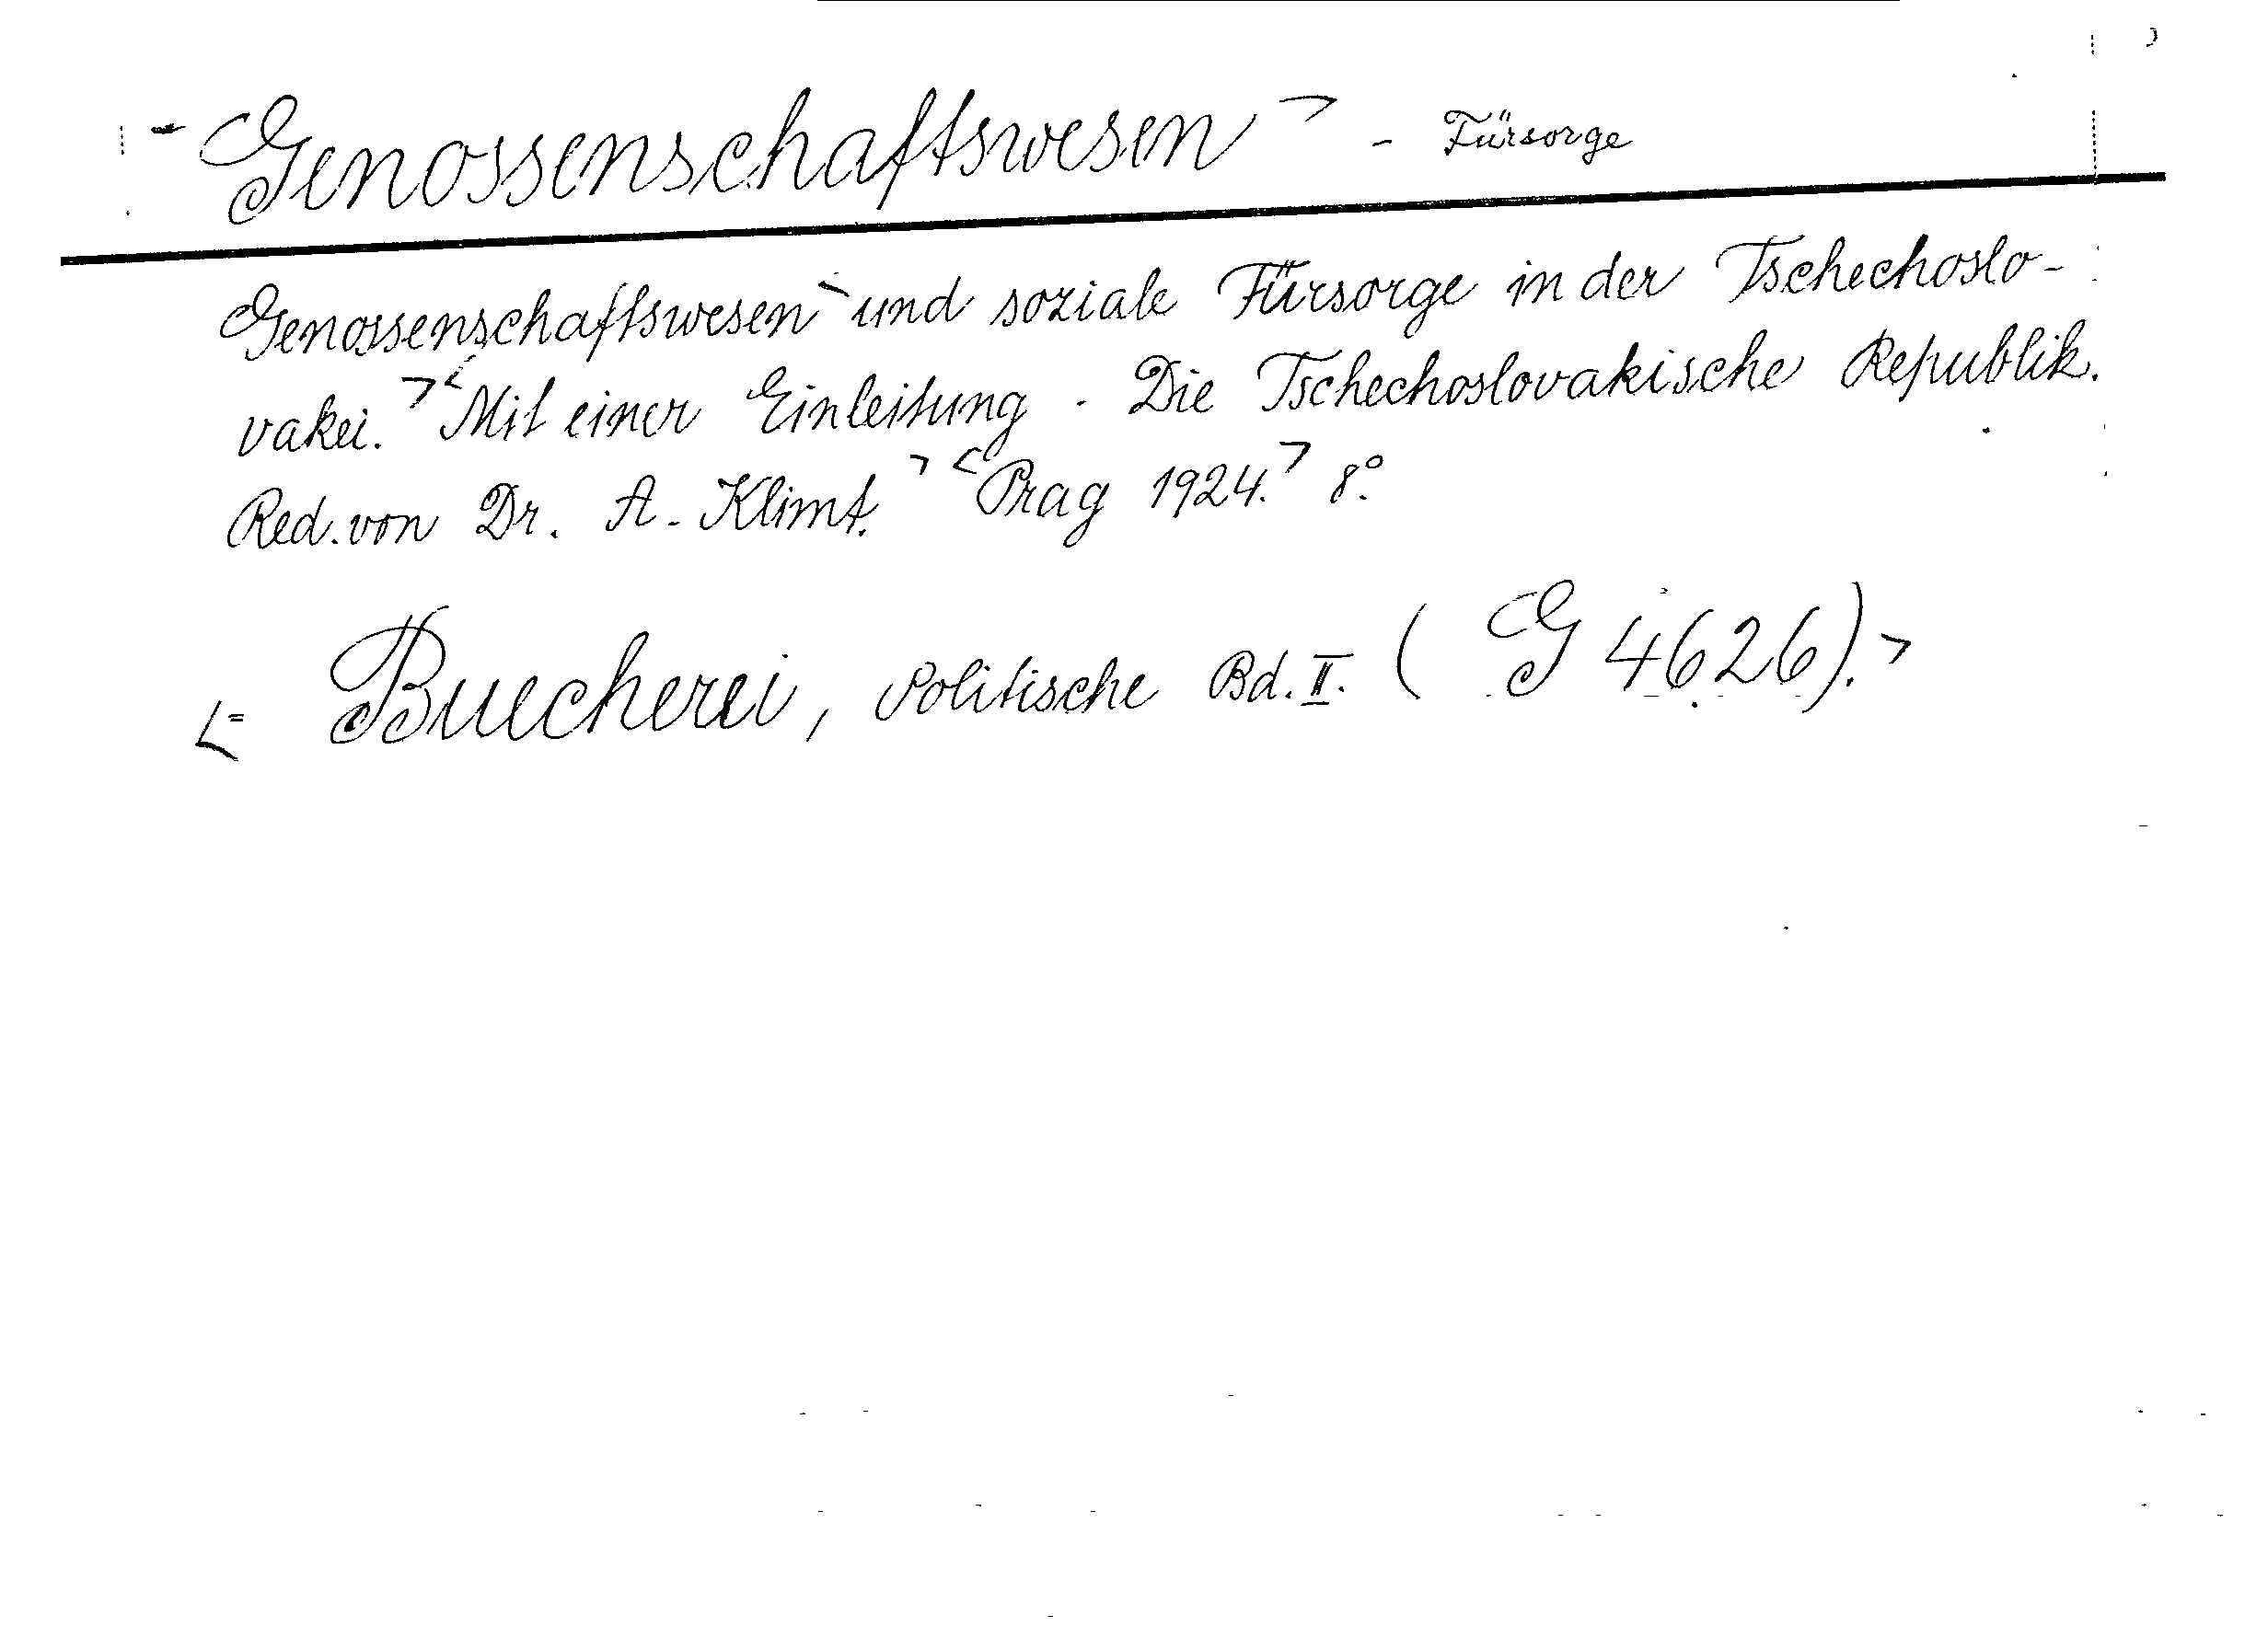 Genossenschaftswesen > - Fürsorge
Genossenschaftswesen und soziale Fürsorge in der Tschechoslo-
vakei. > < Mit einer Einleitung . Die Tschechoslovakische Republik.
Red. von Dr. A. Klimt. > < Prag 1924. > 8°.
<= Buecherei, Politische Bd. II. ( G 4626). >